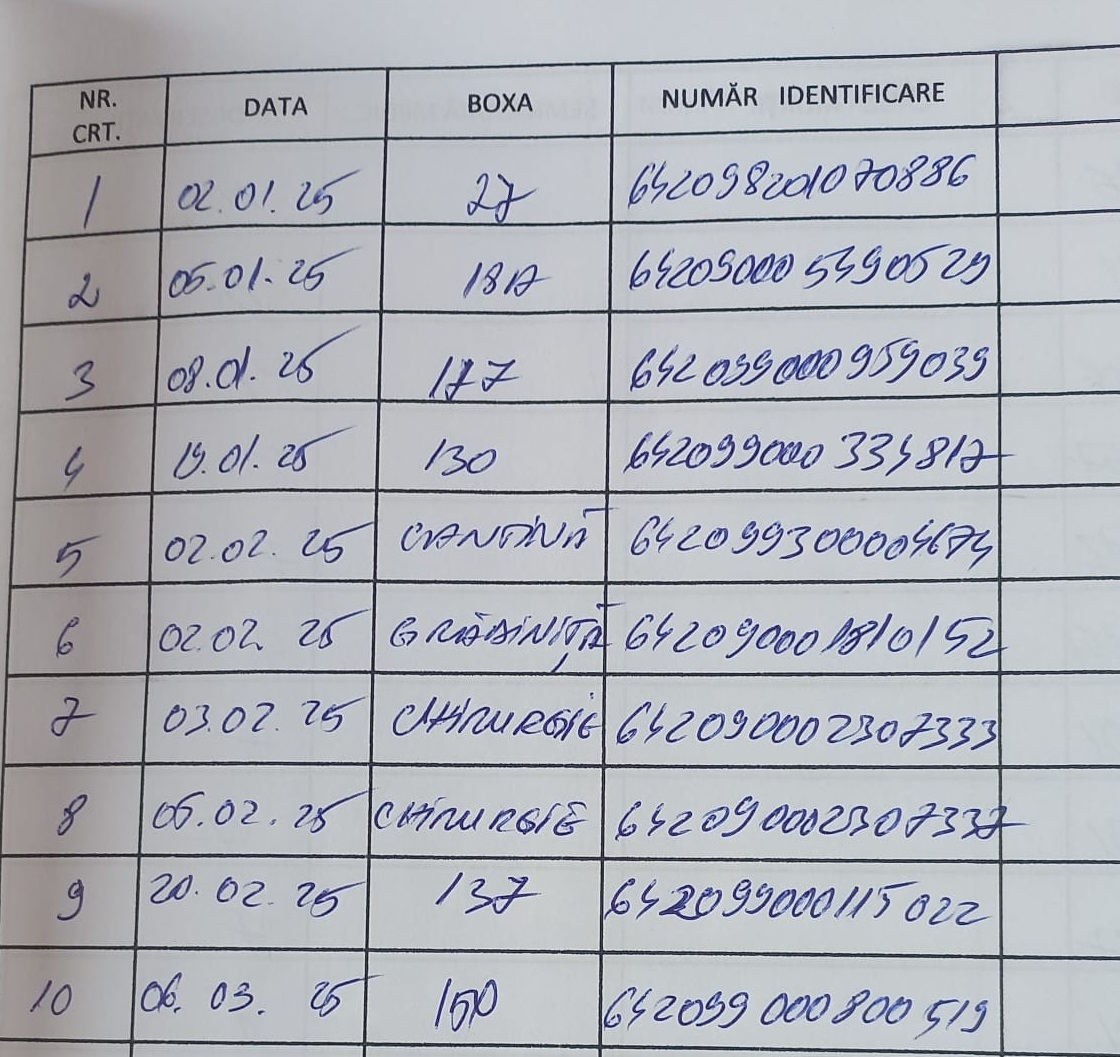 NR. CRT. DATA BOXA NUMĂR IDENTIFICARE
1 02.01.25 27 642098201070886
2 05.01.25 18A 642090005490529
3 08.01.25 177 642099000959039
4 19.01.25 130 642099000334817
5 02.02.25 CANTINĂ 642099300004674
6 02.02 25 GRĂDINIȚĂ 642090001810152
7 03.02.25 CHIRURGIE 642090002307333
8 05.02.25 CHIRURGIE 642090002307337
9 20.02.25 137 642099000115022
10 06.03.25 150 642099000800519